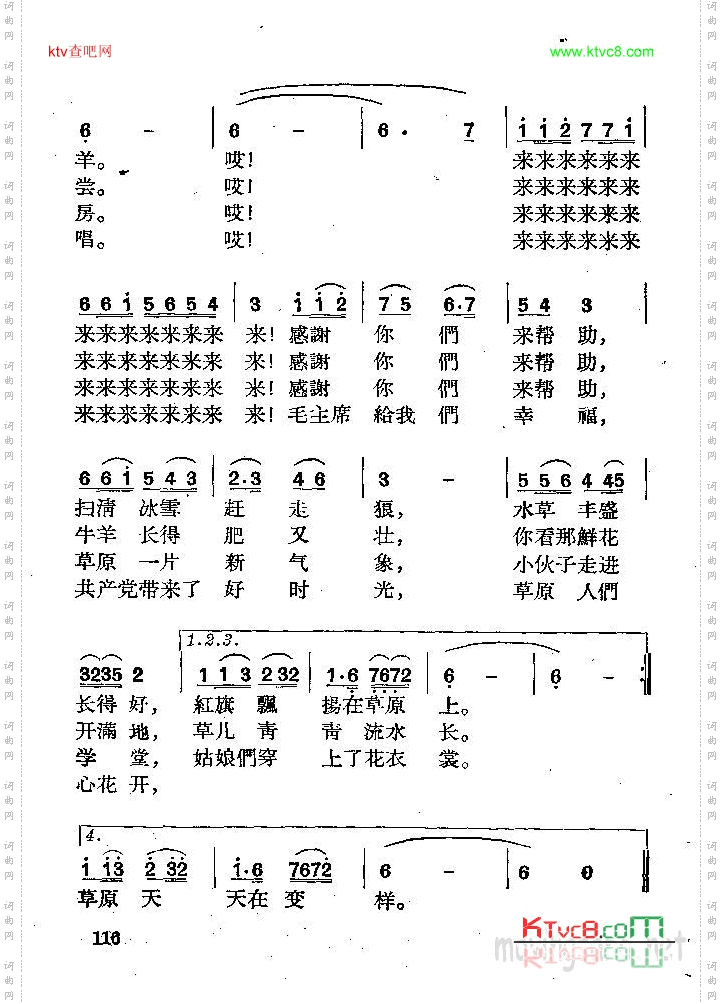 ktv查吧网 www.ktvc8.com
6 - 6 - 6. 7 1 1 2 7 7 1
羊。 哎! 来来来来来来
尝。 哎! 来来来来来来
房。 哎! 来来来来来来
唱。 哎! 来来来来来来
6 6 1 5 6 5 4 3 1 1 2 7 5 6.7 5 4 3
来来来来来来来 来! 感謝 你 們 来帮 助,
来来来来来来来 来! 感謝 你 們 来帮 助,
来来来来来来来 来! 感謝 你 們 来帮 助,
来来来来来来来 来! 毛主席 給我 們 幸 福,
6 6 1 5 4 3 2.3 4 6 3 - 5 5 6 4 45
扫清 冰雪 赶 走 狼, 水草 丰盛
牛羊 长得 肥 又 壮, 你看那鮮花
草原 一片 新 气 象, 小伙子走进
共产党带来了 好 时 光, 草原 人們
1.2.3.
3235 2 1 1 3 2 32 1.6 7672 6 - 6 -
长得 好, 紅旗 飄 揚在草原 上。
开滿 地, 草儿 靑 靑 流水 长。
学 堂, 姑娘們穿 上了花衣 裳。
心花 开,
4.
1 13 2 32 1 1.6 7672 6 - 6 0
草原 天 天在 变 样。
116
KTvc8.com